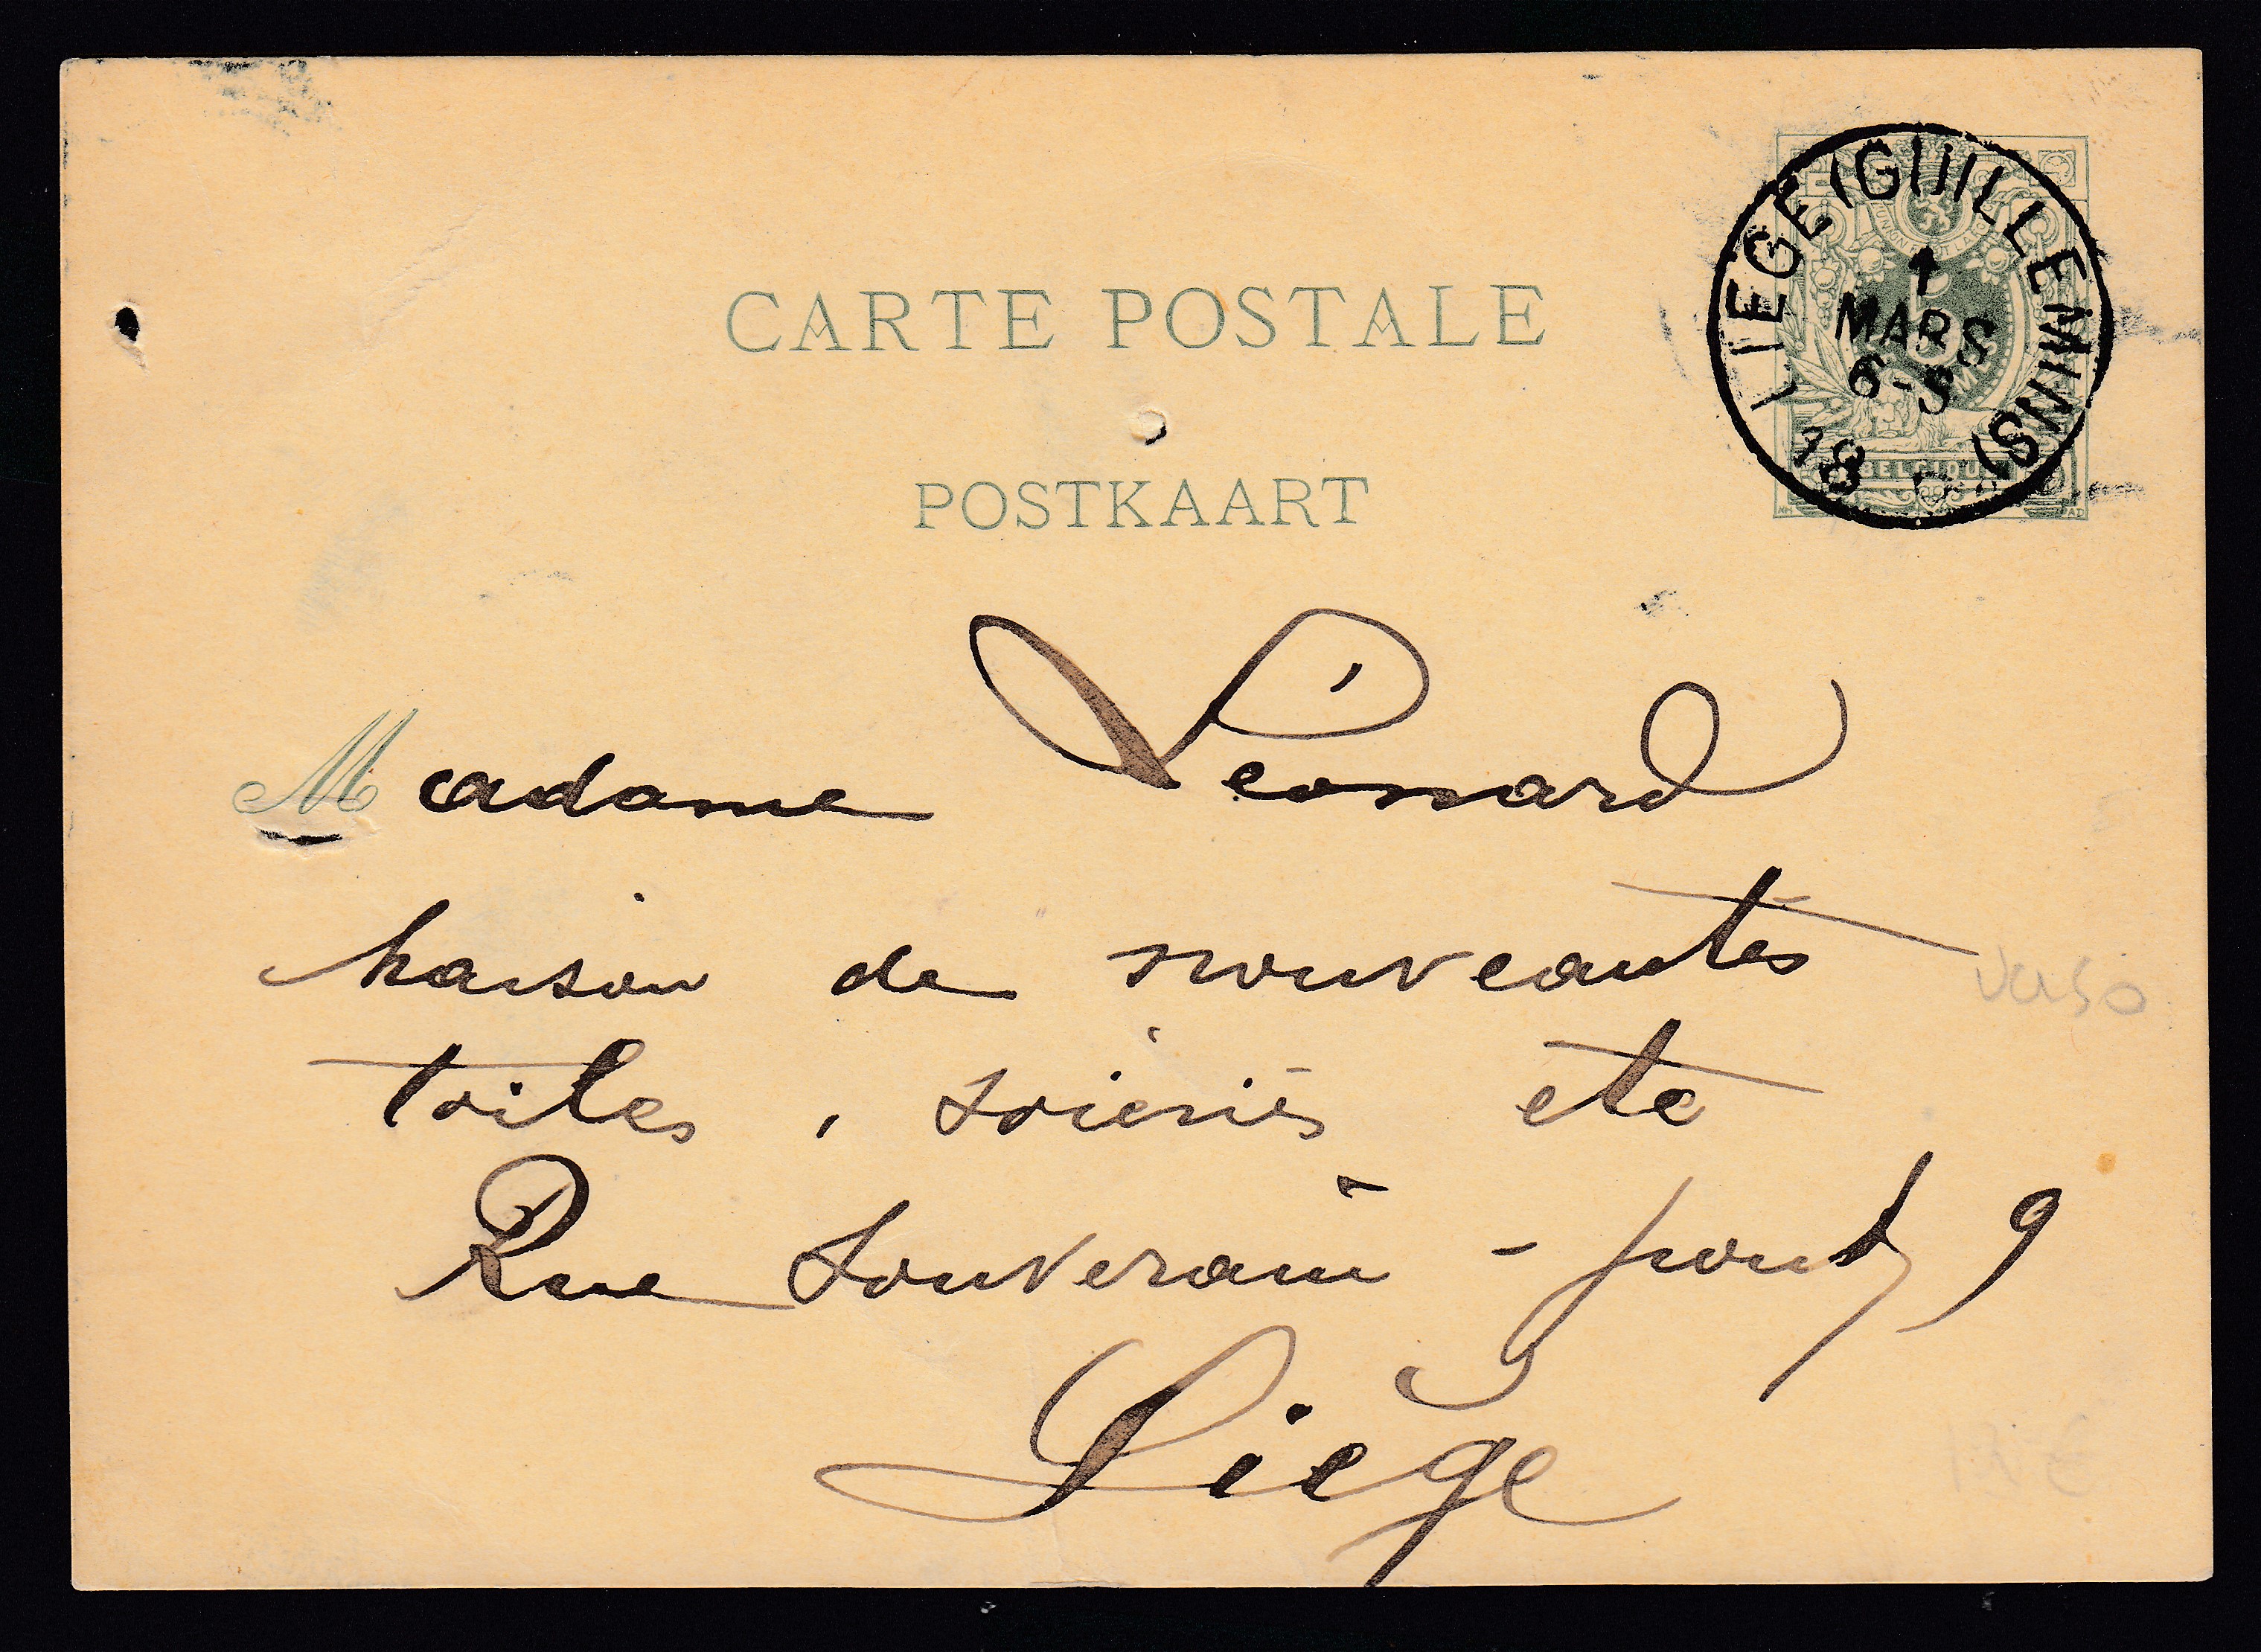 CARTE POSTALE
POSTKAART
LIEGE (GUILLEMINS)
1
MARS
6-S
18
BELGIQUE
Madame Léonard
maison de nouveautés
toiles, soieries etc
Rue Souverain-pont, 9
Liège
verso